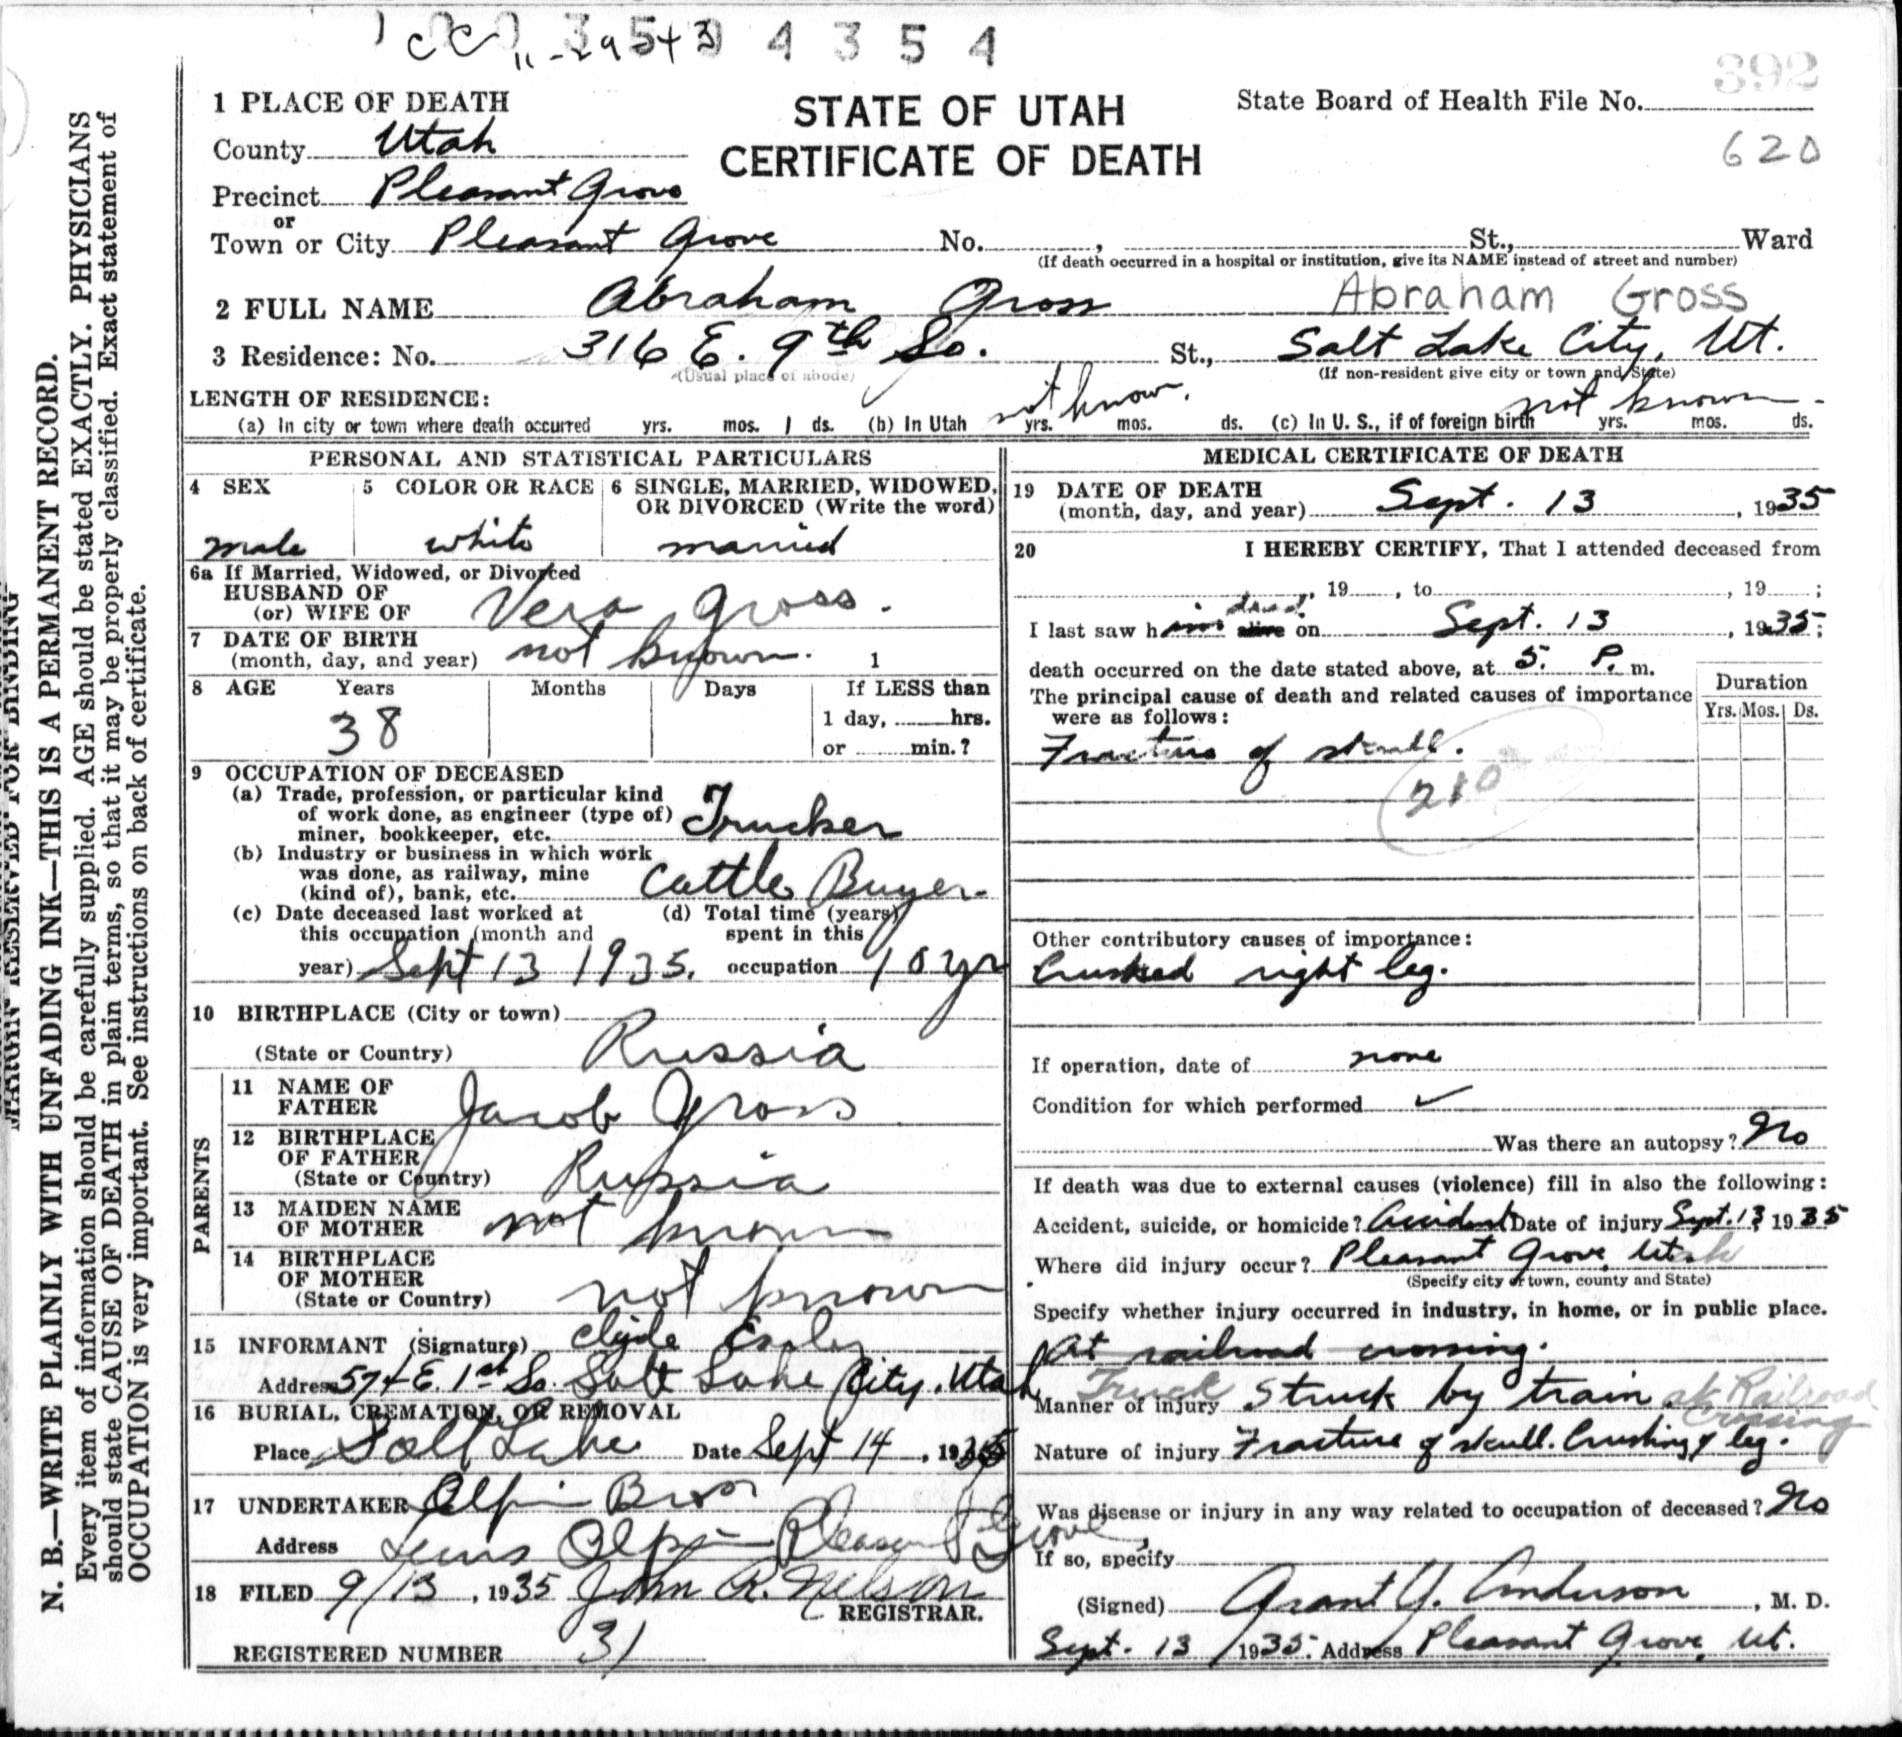 392
1 PLACE OF DEATH
STATE OF UTAH
CERTIFICATE OF DEATH
State Board of Health File No.
620
County Utah
Precinct Pleasant Grove
or
Town or City Pleasant Grove No. , St., Ward
(If death occurred in a hospital or institution, give its NAME instead of street and number)
2 FULL NAME Abraham Gross Abraham Gross
3 Residence: No. 316 E. 9th So. St., Salt Lake City, Ut.
(Usual place of abode) (If non-resident give city or town and State)
LENGTH OF RESIDENCE:
(a) In city or town where death occurred yrs. mos. 1 ds. (b) In Utah not know. yrs. mos. ds. (c) In U. S., if of foreign birth not known yrs. mos. ds.
PERSONAL AND STATISTICAL PARTICULARS
4 SEX
male
5 COLOR OR RACE
white
6 SINGLE, MARRIED, WIDOWED,
OR DIVORCED (Write the word)
married
6a If Married, Widowed, or Divorced
HUSBAND OF
(or) WIFE OF Vera Gross.
7 DATE OF BIRTH
(month, day, and year) not known. 1
8 AGE Years Months Days If LESS than
38
1 day, hrs.
or min.?
9 OCCUPATION OF DECEASED
(a) Trade, profession, or particular kind
of work done, as engineer (type of)
miner, bookkeeper, etc. Trucker
(b) Industry or business in which work
was done, as railway, mine
(kind of), bank, etc. Cattle Buyer
(c) Date deceased last worked at
this occupation (month and
year) Sept 13 1935.
(d) Total time (years)
spent in this
occupation 10 yr
10 BIRTHPLACE (City or town)
(State or Country) Russia
PARENTS
11 NAME OF
FATHER Jacob Gross
12 BIRTHPLACE
OF FATHER
(State or Country) Russia
13 MAIDEN NAME
OF MOTHER not known
14 BIRTHPLACE
OF MOTHER
(State or Country) not known
15 INFORMANT (Signature) Clyde
Address 574 E. 1st So. Salt Lake City, Utah
16 BURIAL, CREMATION, OR REMOVAL
Place Salt Lake Date Sept 14, 1935
17 UNDERTAKER Olpin Bros
Address Lewis Olpin Pleasant Grove
18 FILED 9/13, 1935 John R. Nelson
REGISTRAR.
REGISTERED NUMBER 31
MEDICAL CERTIFICATE OF DEATH
19 DATE OF DEATH
(month, day, and year) Sept. 13, 1935
20 I HEREBY CERTIFY, That I attended deceased from
, 19 , to , 19 ;
dead
I last saw him alive on Sept. 13, 1935;
death occurred on the date stated above, at 5. P. m.
The principal cause of death and related causes of importance
were as follows:
Duration
Yrs. Mos. Ds.
Fracture of skull.
210
Other contributory causes of importance:
Crushed right leg.
If operation, date of none
Condition for which performed
Was there an autopsy? No
If death was due to external causes (violence) fill in also the following:
Accident, suicide, or homicide? Accident Date of injury Sept. 13 1935
Where did injury occur? Pleasant Grove, Utah
(Specify city or town, county and State)
Specify whether injury occurred in industry, in home, or in public place.
At railroad crossing.
Manner of injury Truck Struck by train at Railroad Crossing
Nature of injury Fracture of skull. Crushing of leg.
Was disease or injury in any way related to occupation of deceased? No
If so, specify
(Signed) Grant Y. Anderson, M. D.
Sept. 13, 1935. Address Pleasant Grove, Ut.
N. B.—WRITE PLAINLY WITH UNFADING INK—THIS IS A PERMANENT RECORD.
Every item of information should be carefully supplied. AGE should be stated EXACTLY. PHYSICIANS
should state CAUSE OF DEATH in plain terms, so that it may be properly classified. Exact statement of
OCCUPATION is very important. See instructions on back of certificate.
MARGIN RESERVED FOR BINDING